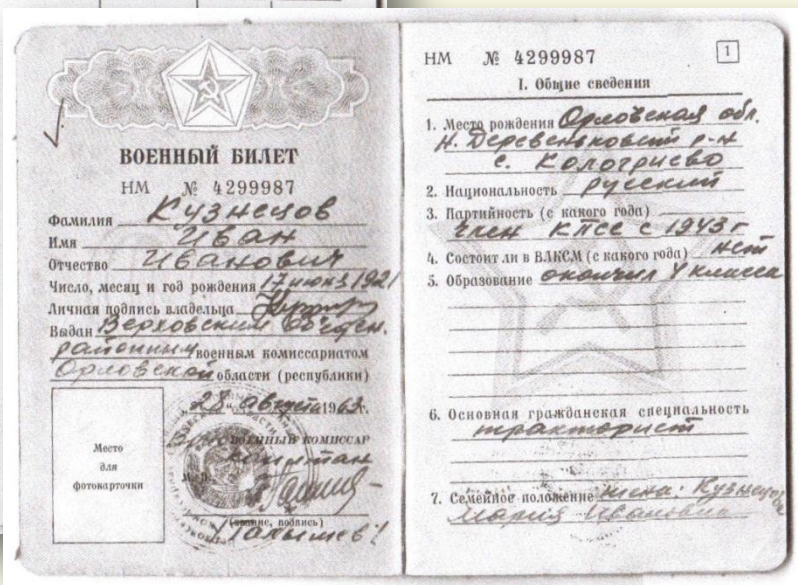 ВОЕННЫЙ БИЛЕТ
НМ № 4299987
Фамилия Кузнецов
Имя Иван
Отчество Иванович
Число, месяц и год рождения 17 июня 1921
Личная подпись владельца
Выдан Верховским об'един.
районным военным комиссариатом
Орловской области (республики)
"28" августа 1963 г.
ВОЕННЫЙ КОМИССАР
капитан
Место
для
фотокарточки
М. П.
(звание, подпись)
НМ № 4299987
1
I. Общие сведения
1. Место рождения Орловская обл.
Н. Деревеньковский р-н
с. Кологриево
2. Национальность русский
3. Партийность (с какого года)
член КПСС с 1943 г
4. Состоит ли в ВЛКСМ (с какого года) нет
5. Образование окончил 4 класса
6. Основная гражданская специальность
тракторист
7. Семейное положение жена: Кузнецова
Мария Ивановна